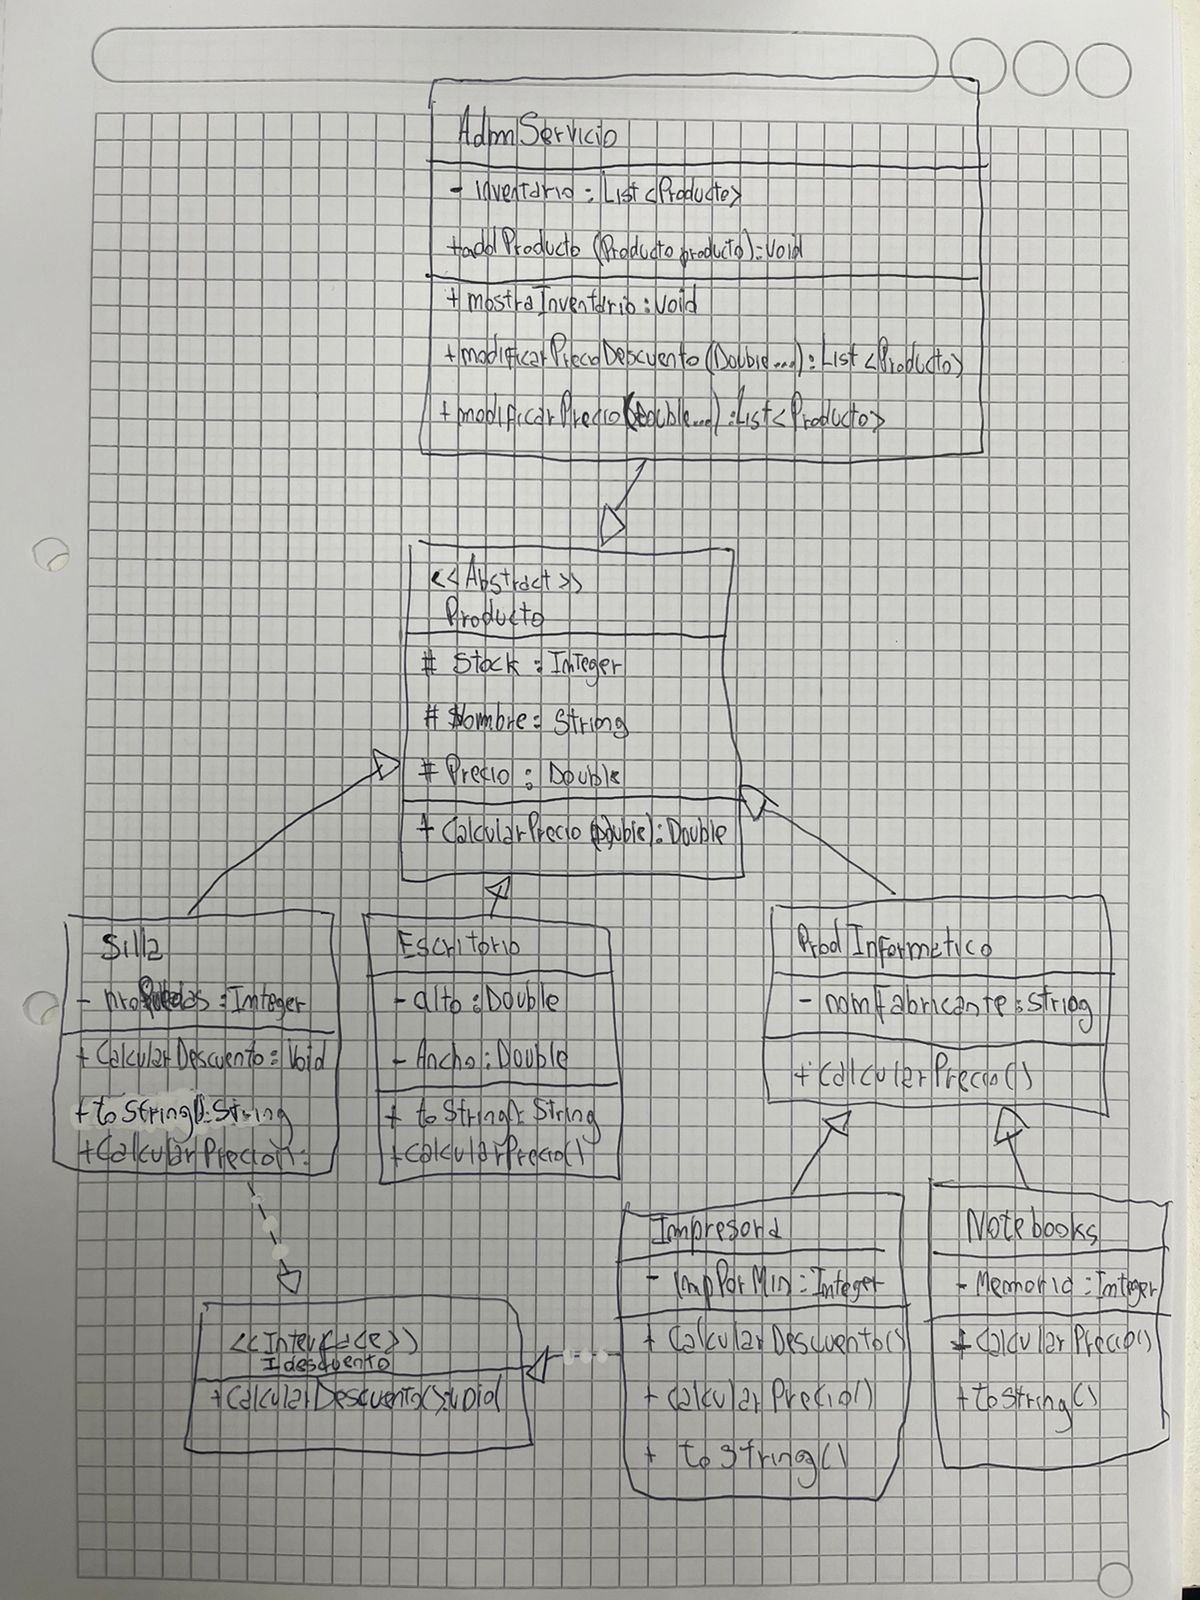 AdmServicio
- Inventario : List <Producto>
+ addProducto (Producto producto) : Void
+ mostraInventario : void
+ modificarPrecioDescuento (Double....) : List <Producto>
+ modificarPrecio (Double....) : List <Producto>
<<Abstract>>
Producto
# Stock : Integer
# Nombre : String
# Precio : Double
+ CalcularPrecio (Double) : Double
Silla
- : Integer
+ CalcularDescuento : Void
+ toString() : String
+ CalcularPrecio() :
Escritorio
- alto : Double
- Ancho : Double
+ toString() : String
+ calcularPrecio()
Prod Informetico
- nomFabricante : String
+ CalcularPrecio()
Impresora
- ImpPorMin : Integer
+ CalcularDescuento()
+ CalcularPrecio()
+ toString()
Notebooks
- Memoria : Integer
+ CalcularPrecio()
+ toString()
<<Interface>>
Idescuento
+ CalcularDescuento() : void